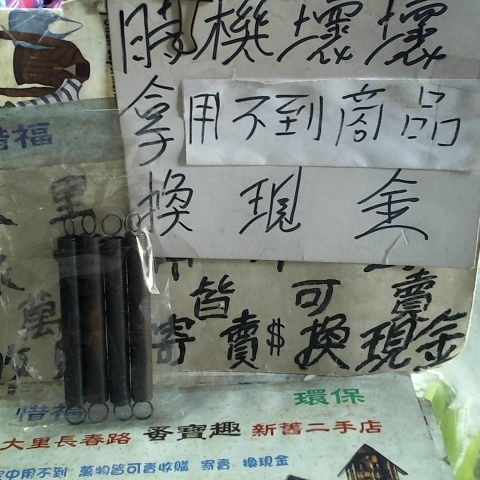 時機壞壞
拿用不到商品
換現金
惜福
里
皆可賣
萬寄賣$換現金
惜福
環保
大里長春路 蚤寶趣 新舊二手店
家中用不到 萬物皆可喜收購 寄賣 換現金